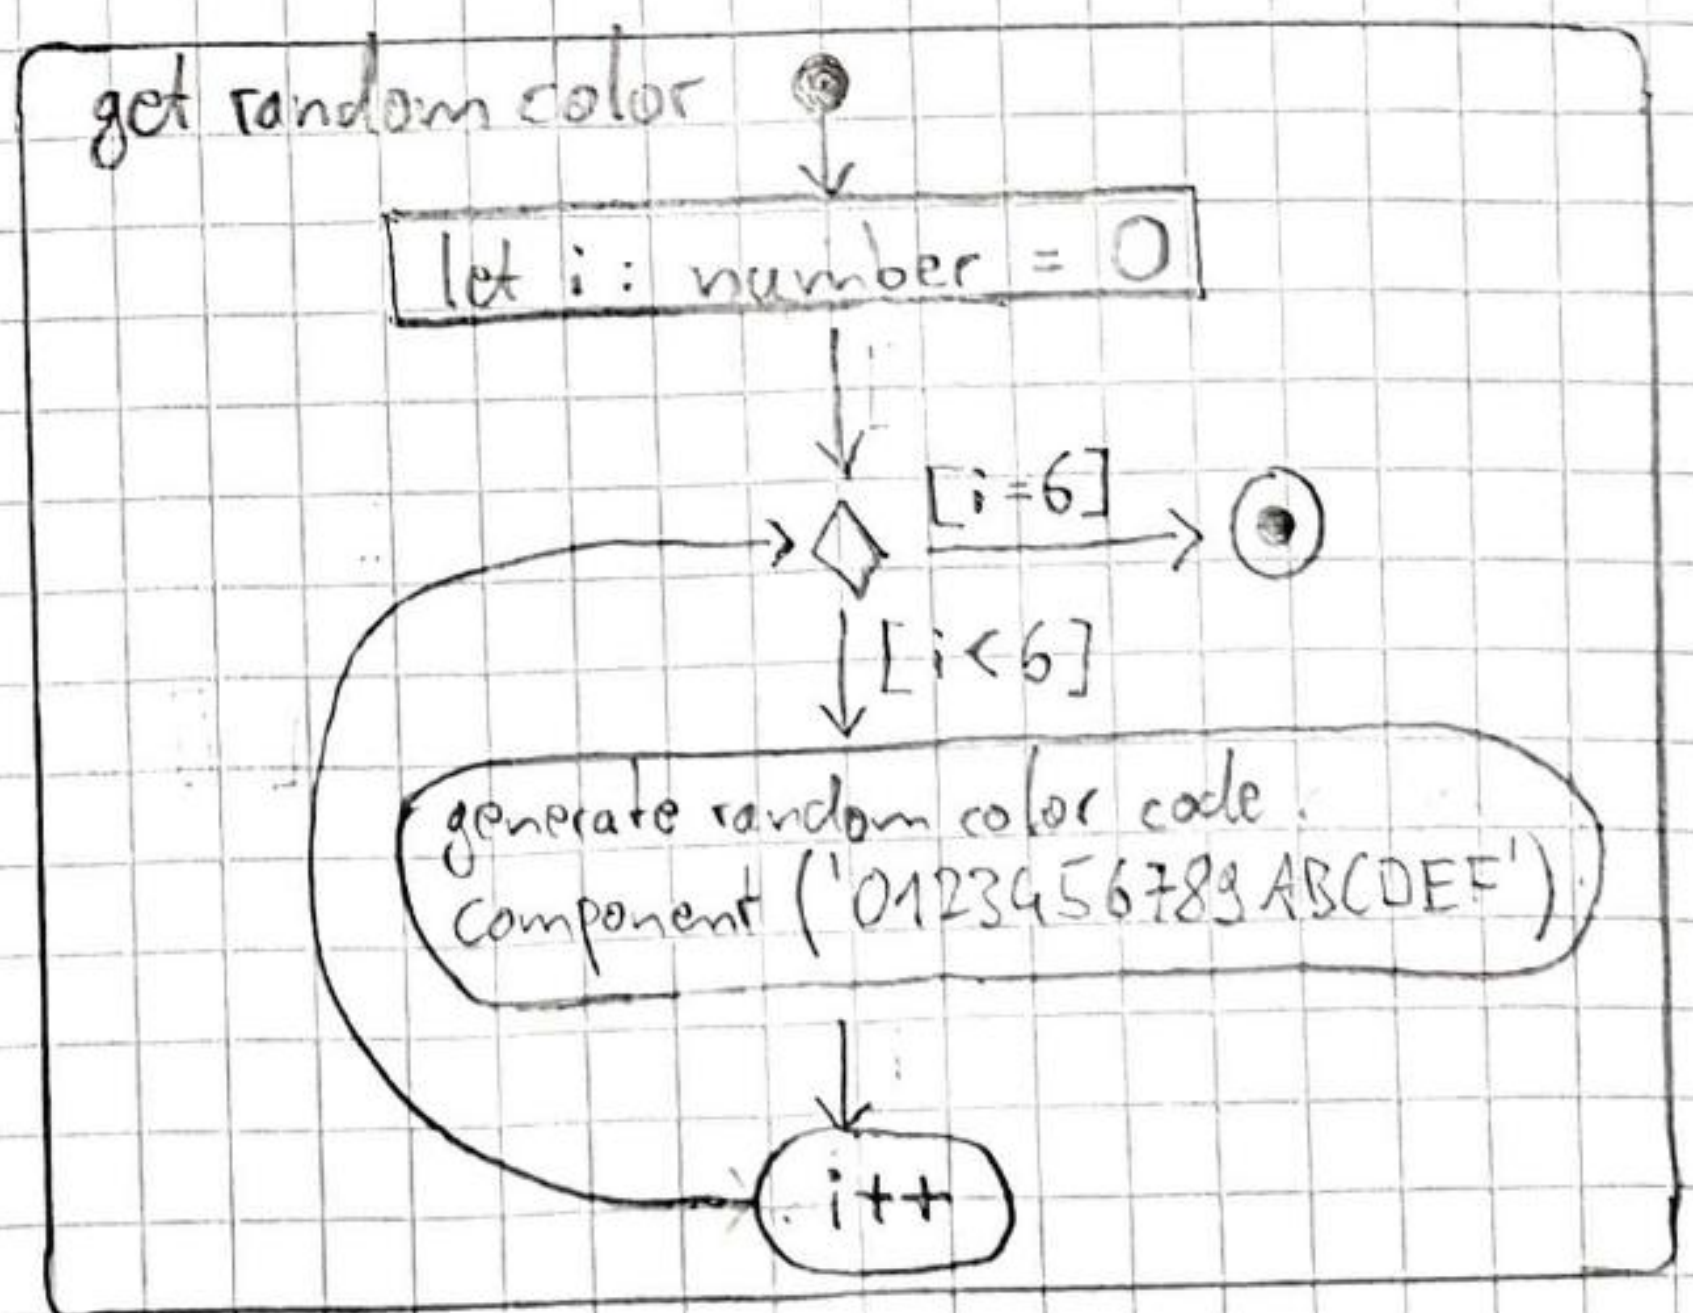 get random color
let i : number = 0
[i=6]
[i<6]
generate random color code
component ('0123456789ABCDEF')
i++